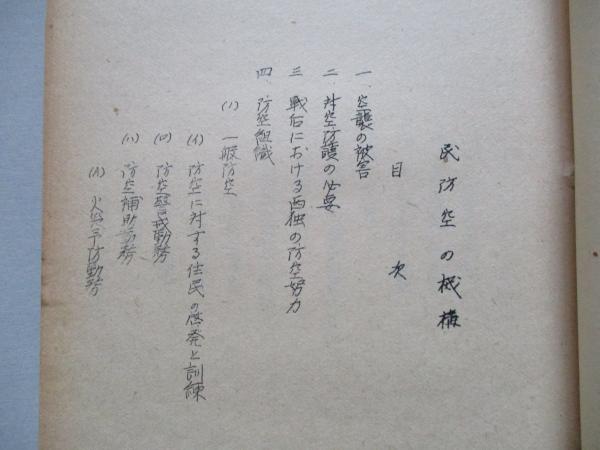 民防空の機構
目次
一、空襲の被害
二 対空防護の必要
三 戦后における西独の防空努力
四、防空組織
(1) 一般防空
(イ) 防空に対する住民の啓発と訓練
(ロ) 防空警戒勤務
(ハ) 防空補助勤務
(A) 火災予防勤務